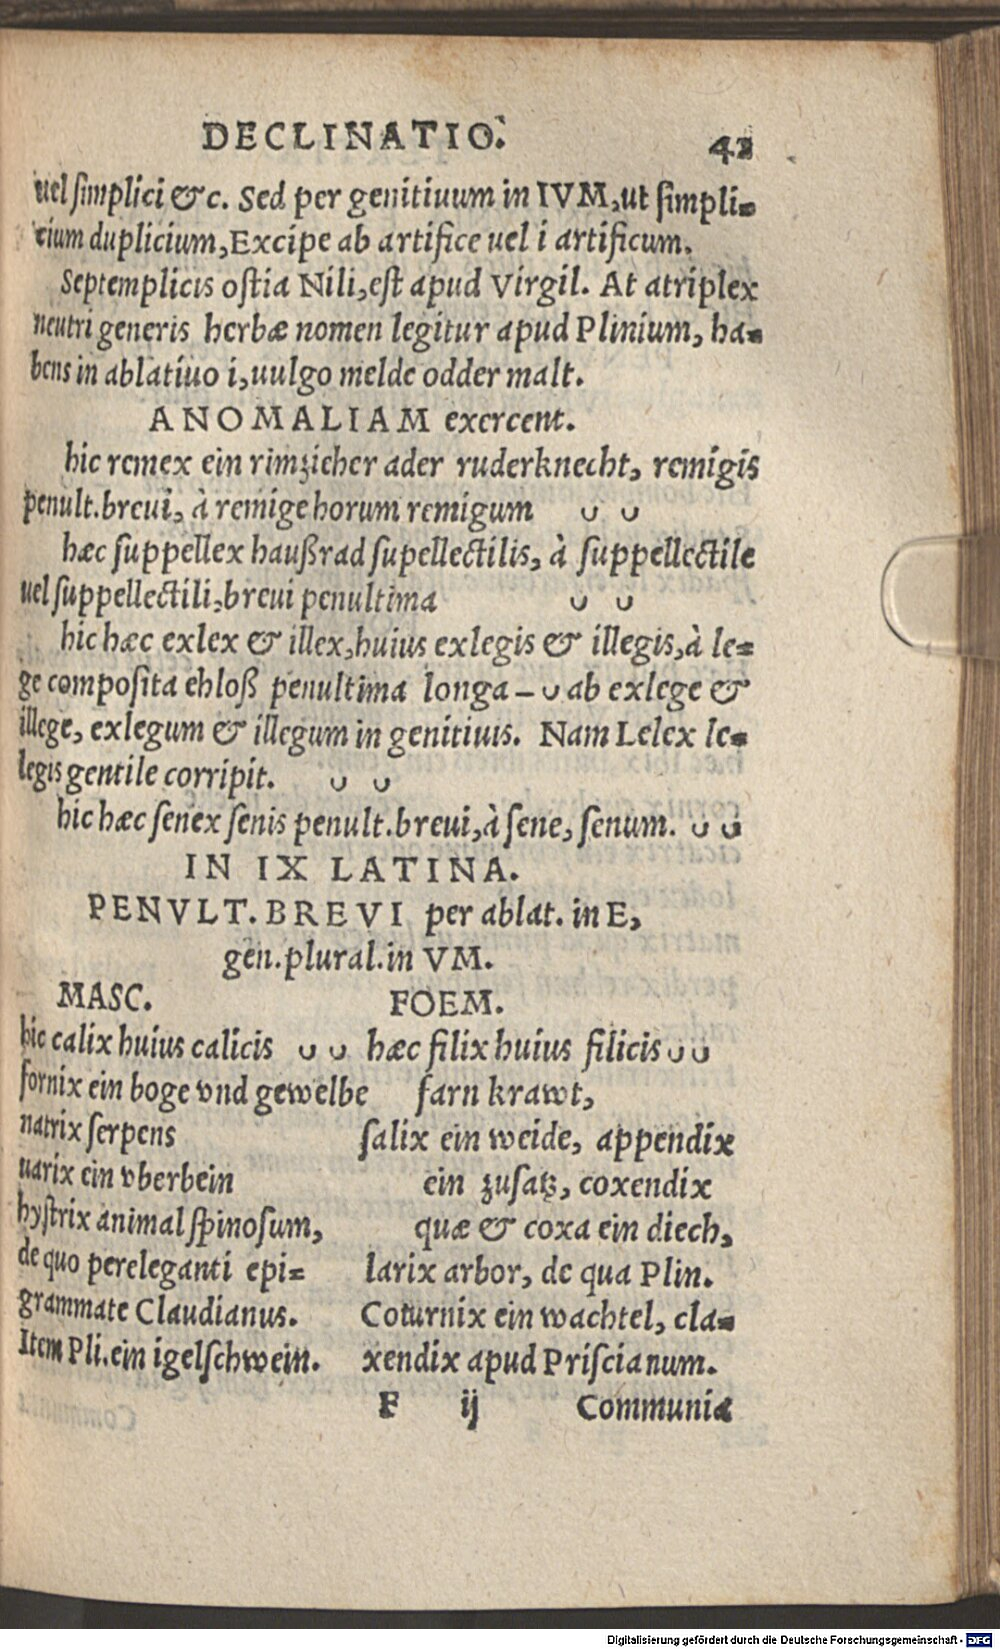 DECLINATIO. 42
uel ſimplici &c. Sed per genitiuum in IVM, ut ſimpli-
cium duplicium, Excipe ab artifice uel i artificum.
Septemplicis oſtia Nili, eſt apud Virgil. At atriplex
neutri generis herbæ nomen legitur apud Plinium, ha-
bens in ablatiuo i, uulgo melde odder malt.
ANOMALIAM exercent.
hic remex ein rimzieher ader ruderknecht, remigis
penult. breui, à remige horum remigum ᴗ ᴗ
hæc ſuppellex haußrad ſupellectilis, à ſuppellectile
uel ſuppellectili, breui penultima ᴗ ᴗ
hic hæc exlex & illex, huius exlegis & illegis, à le-
ge compoſita ehloß penultima longa – ᴗ ab exlege &
illege, exlegum & illegum in genitiuis. Nam Lelex le-
legis gentile corripit. ᴗ ᴗ
hic hæc ſenex ſenis penult. breui, à ſene, ſenum. ᴗ ᴗ
IN IX LATINA.
PENVLT. BREVI per ablat. in E,
gen. plural. in VM.
MASC.
hic calix huius calicis ᴗ ᴗ
fornix ein boge vnd gewelbe
natrix ſerpens
uarix ein vberbein
hyſtrix animal ſpinoſum,
de quo pereleganti epi-
grammate Claudianus.
Item Pli. ein igelſchwein.
FOEM.
hæc filix huius filicis ᴗ ᴗ
farn krawt,
ſalix ein weide, appendix
ein zuſatz, coxendix
quæ & coxa ein diech,
larix arbor, de qua Plin.
Coturnix ein wachtel, cla-
xendix apud Priſcianum.
F ij Communia
Digitalisierung gefördert durch die Deutsche Forschungsgemeinschaft - DFG